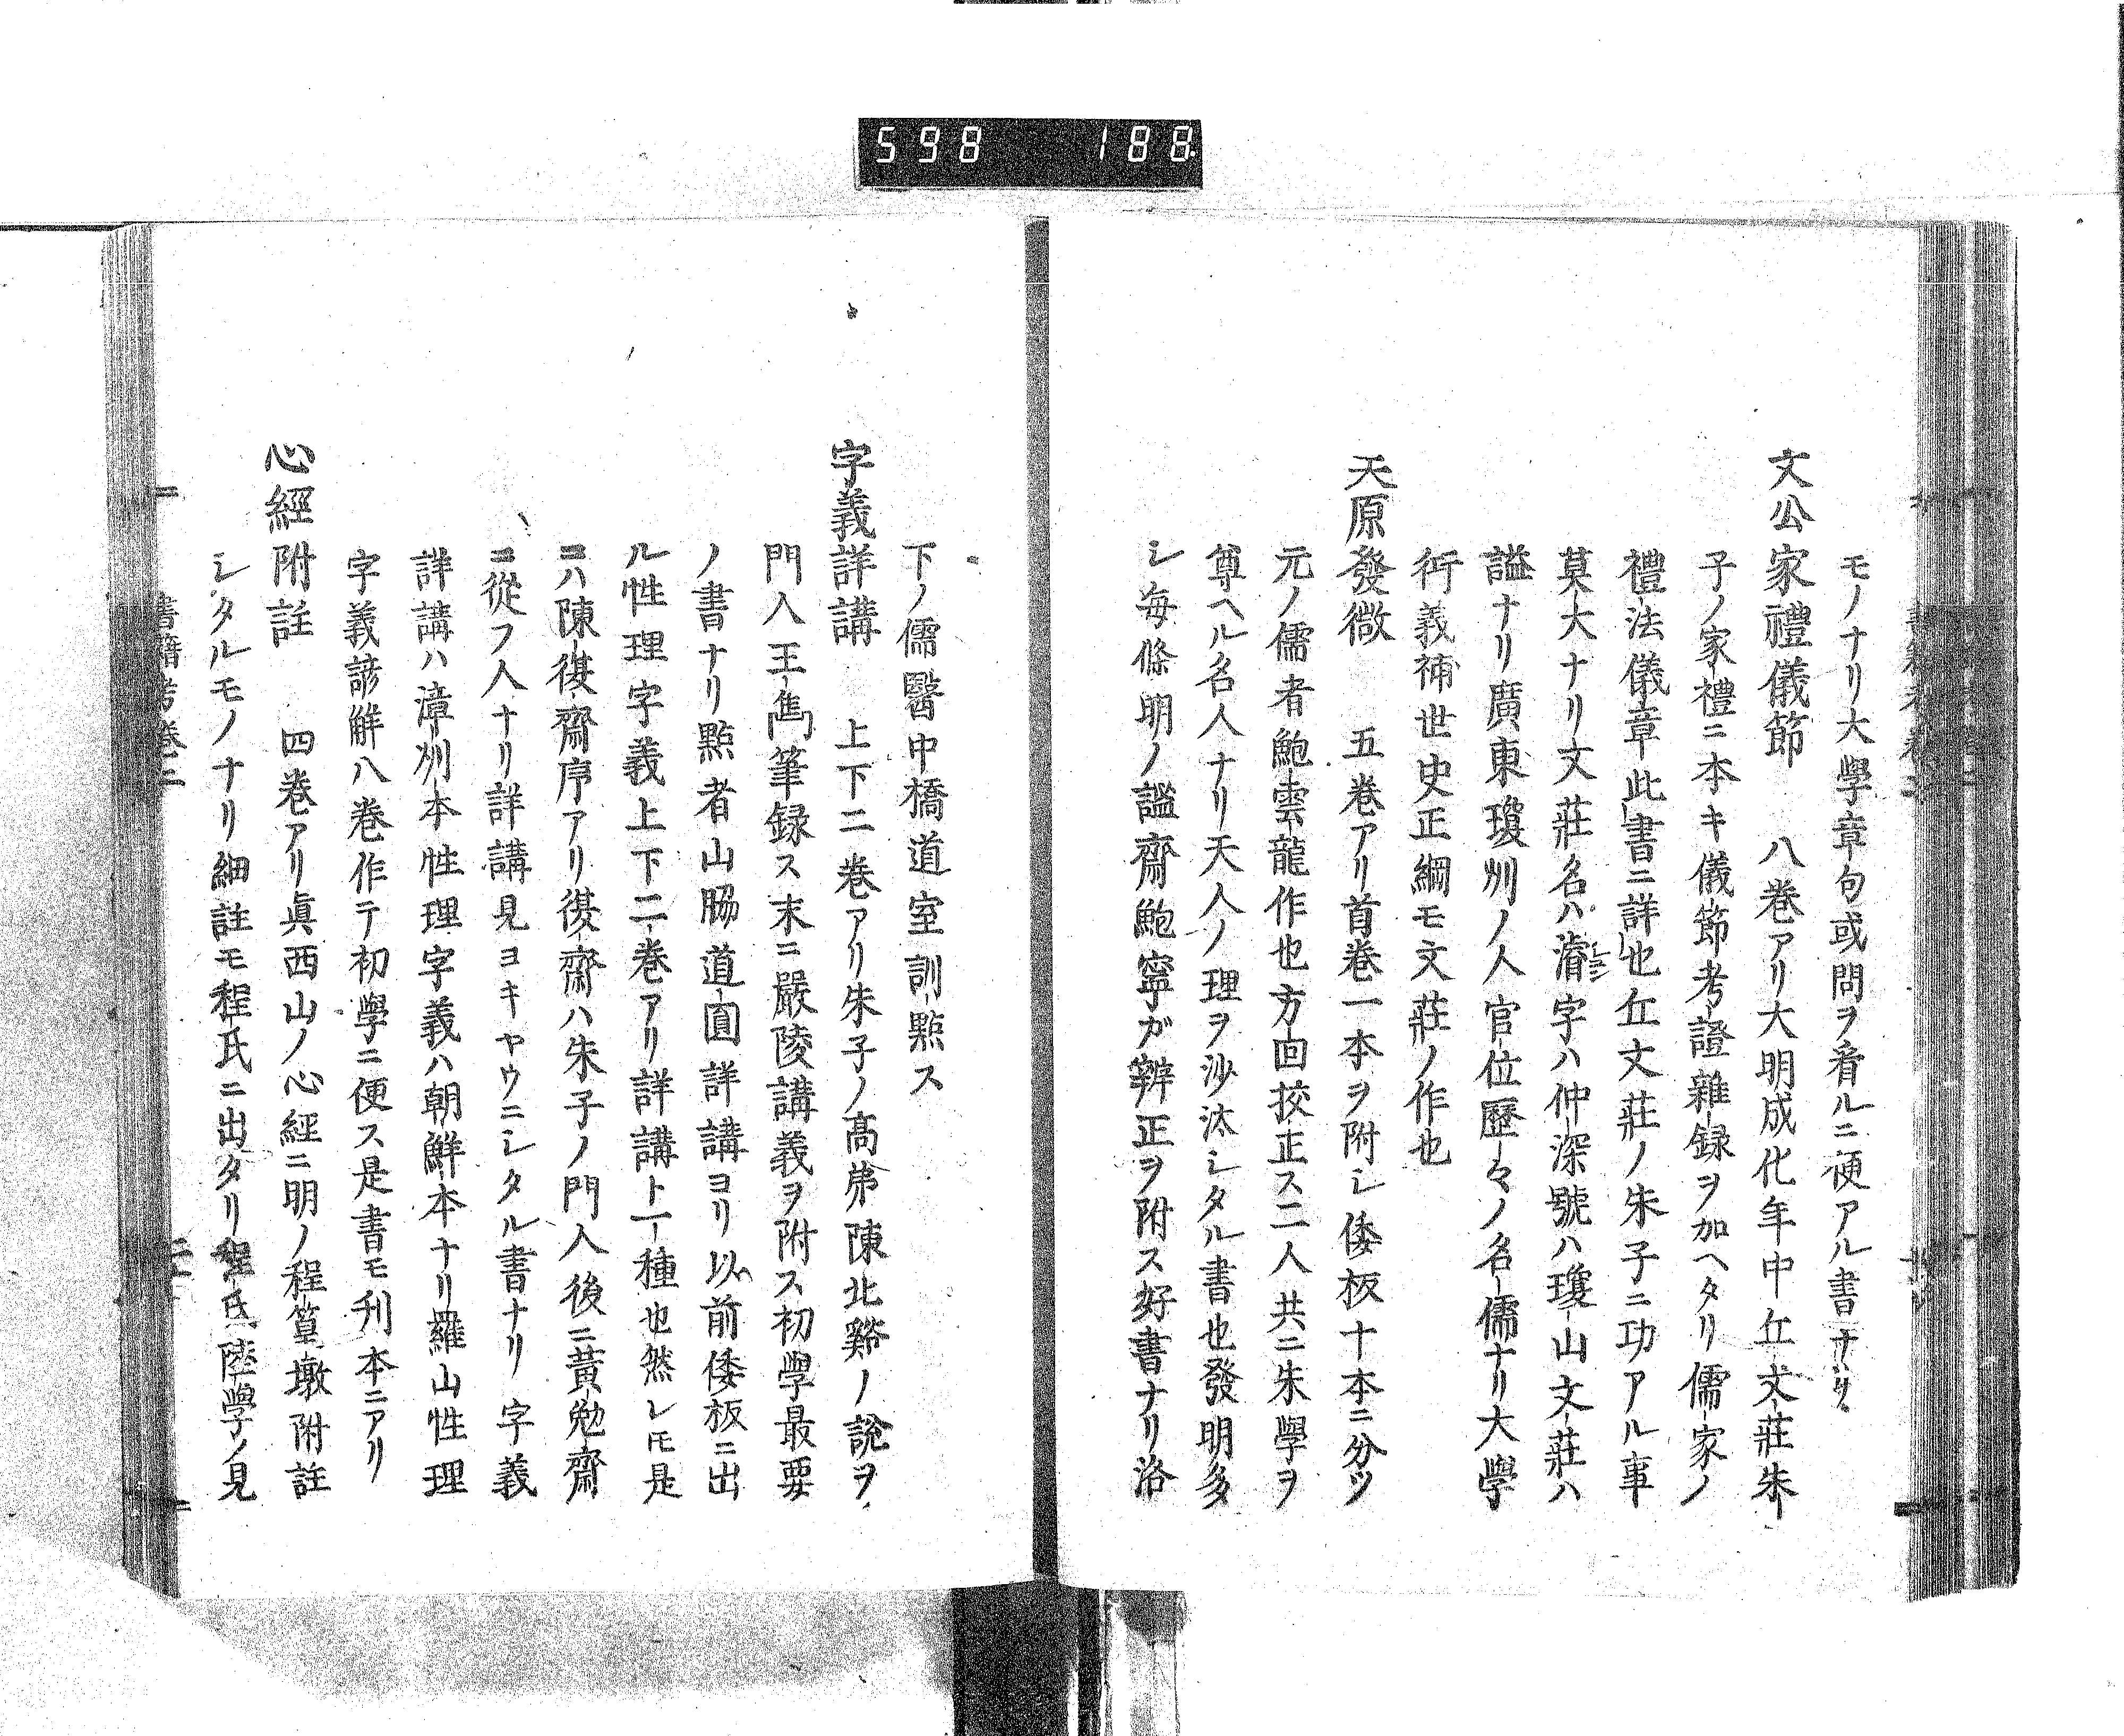 598 188
モノナリ大學章句或問ヲ看ルニ便アル書ナリ
文公家禮儀節 八巻アリ大明成化年中丘文莊朱
子ノ家禮ニ本キ儀節考證雜録ヲ加ヘタリ儒家ノ
禮法儀章此書ニ詳也丘文莊ノ朱子ニ功アル事
莫大ナリ文莊名ハ濬字ハ仲深號ハ瓊山文莊ハ
謚ナリ廣東瓊州ノ人官位歷々ノ名儒ナリ大學
衍義補世史正綱モ文莊ノ作也
天原發微 五巻アリ首巻一本ヲ附シ倭板十本ニ分ツ
元ノ儒者鮑雲龍作也方回挍正ス二人共ニ朱學ヲ
尊ヘル名人ナリ天人ノ理ヲ沙汰シタル書也發明多
シ毎條明ノ謐齋鮑寧ガ辨正ヲ附ス好書ナリ洛
下ノ儒醫中橋道室訓點ス
字義詳講 上下二巻アリ朱子ノ髙弟陳北谿ノ說ヲ
門人王雋筆録ス末ニ嚴陵講義ヲ附ス初學最要
ノ書ナリ點者山脇道圓詳講ヨリ以前倭板ニ出
ル性理字義上下二巻アリ詳講ト一種也然レ𪜈是
ニハ陳復齋序アリ復齋ハ朱子ノ門人後ニ黃勉齋
ニ從フ人ナリ詳講見ヨキヤウニシタル書ナリ字義
詳講ハ漳州本性理字義ハ朝鮮本ナリ羅山性理
字義諺解八巻作テ初學ニ便ス是書モ刋本ニアリ
心經附註 四巻アリ眞西山ノ心經ニ明ノ程篁墩附註
シタルモノナリ細註モ程氏ニ出タリ程氏陸學ノ見
書籍考巻三